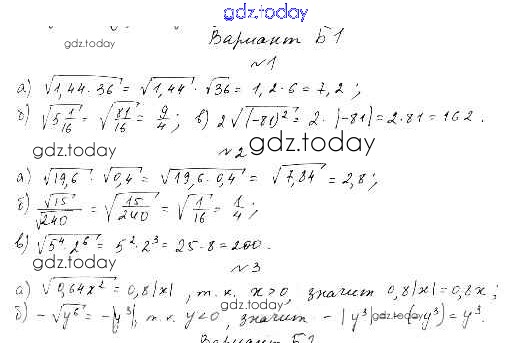 gdz.today
Вариант Б1
gdz.today
№1
а) √1,44·36 = √1,44 · √36 = 1,2·6 = 7,2;
б) √5 1/16 = √81/16 = 9/4; в) 2√(-81)² = 2·|-81| = 2·81 = 162.
gdz.today gdz.today
№2
а) √19,6 · √0,4 = √19,6·0,4 = √7,84 = 2,8;
б) √15/√240 = √15/240 = √1/16 = 1/4;
в) √5⁴·2⁶ = 5²·2³ = 25·8 = 200.
gdz.today
№3
а) √0,64x² = 0,8|x|, т.к. x>0, значит 0,8|x| = 0,8x;
б) -√y⁶ = -|y³|, т.к. y<0, значит -|y³| = -(-y³) = y³.
gdz.today gdz.today
Вариант Б2